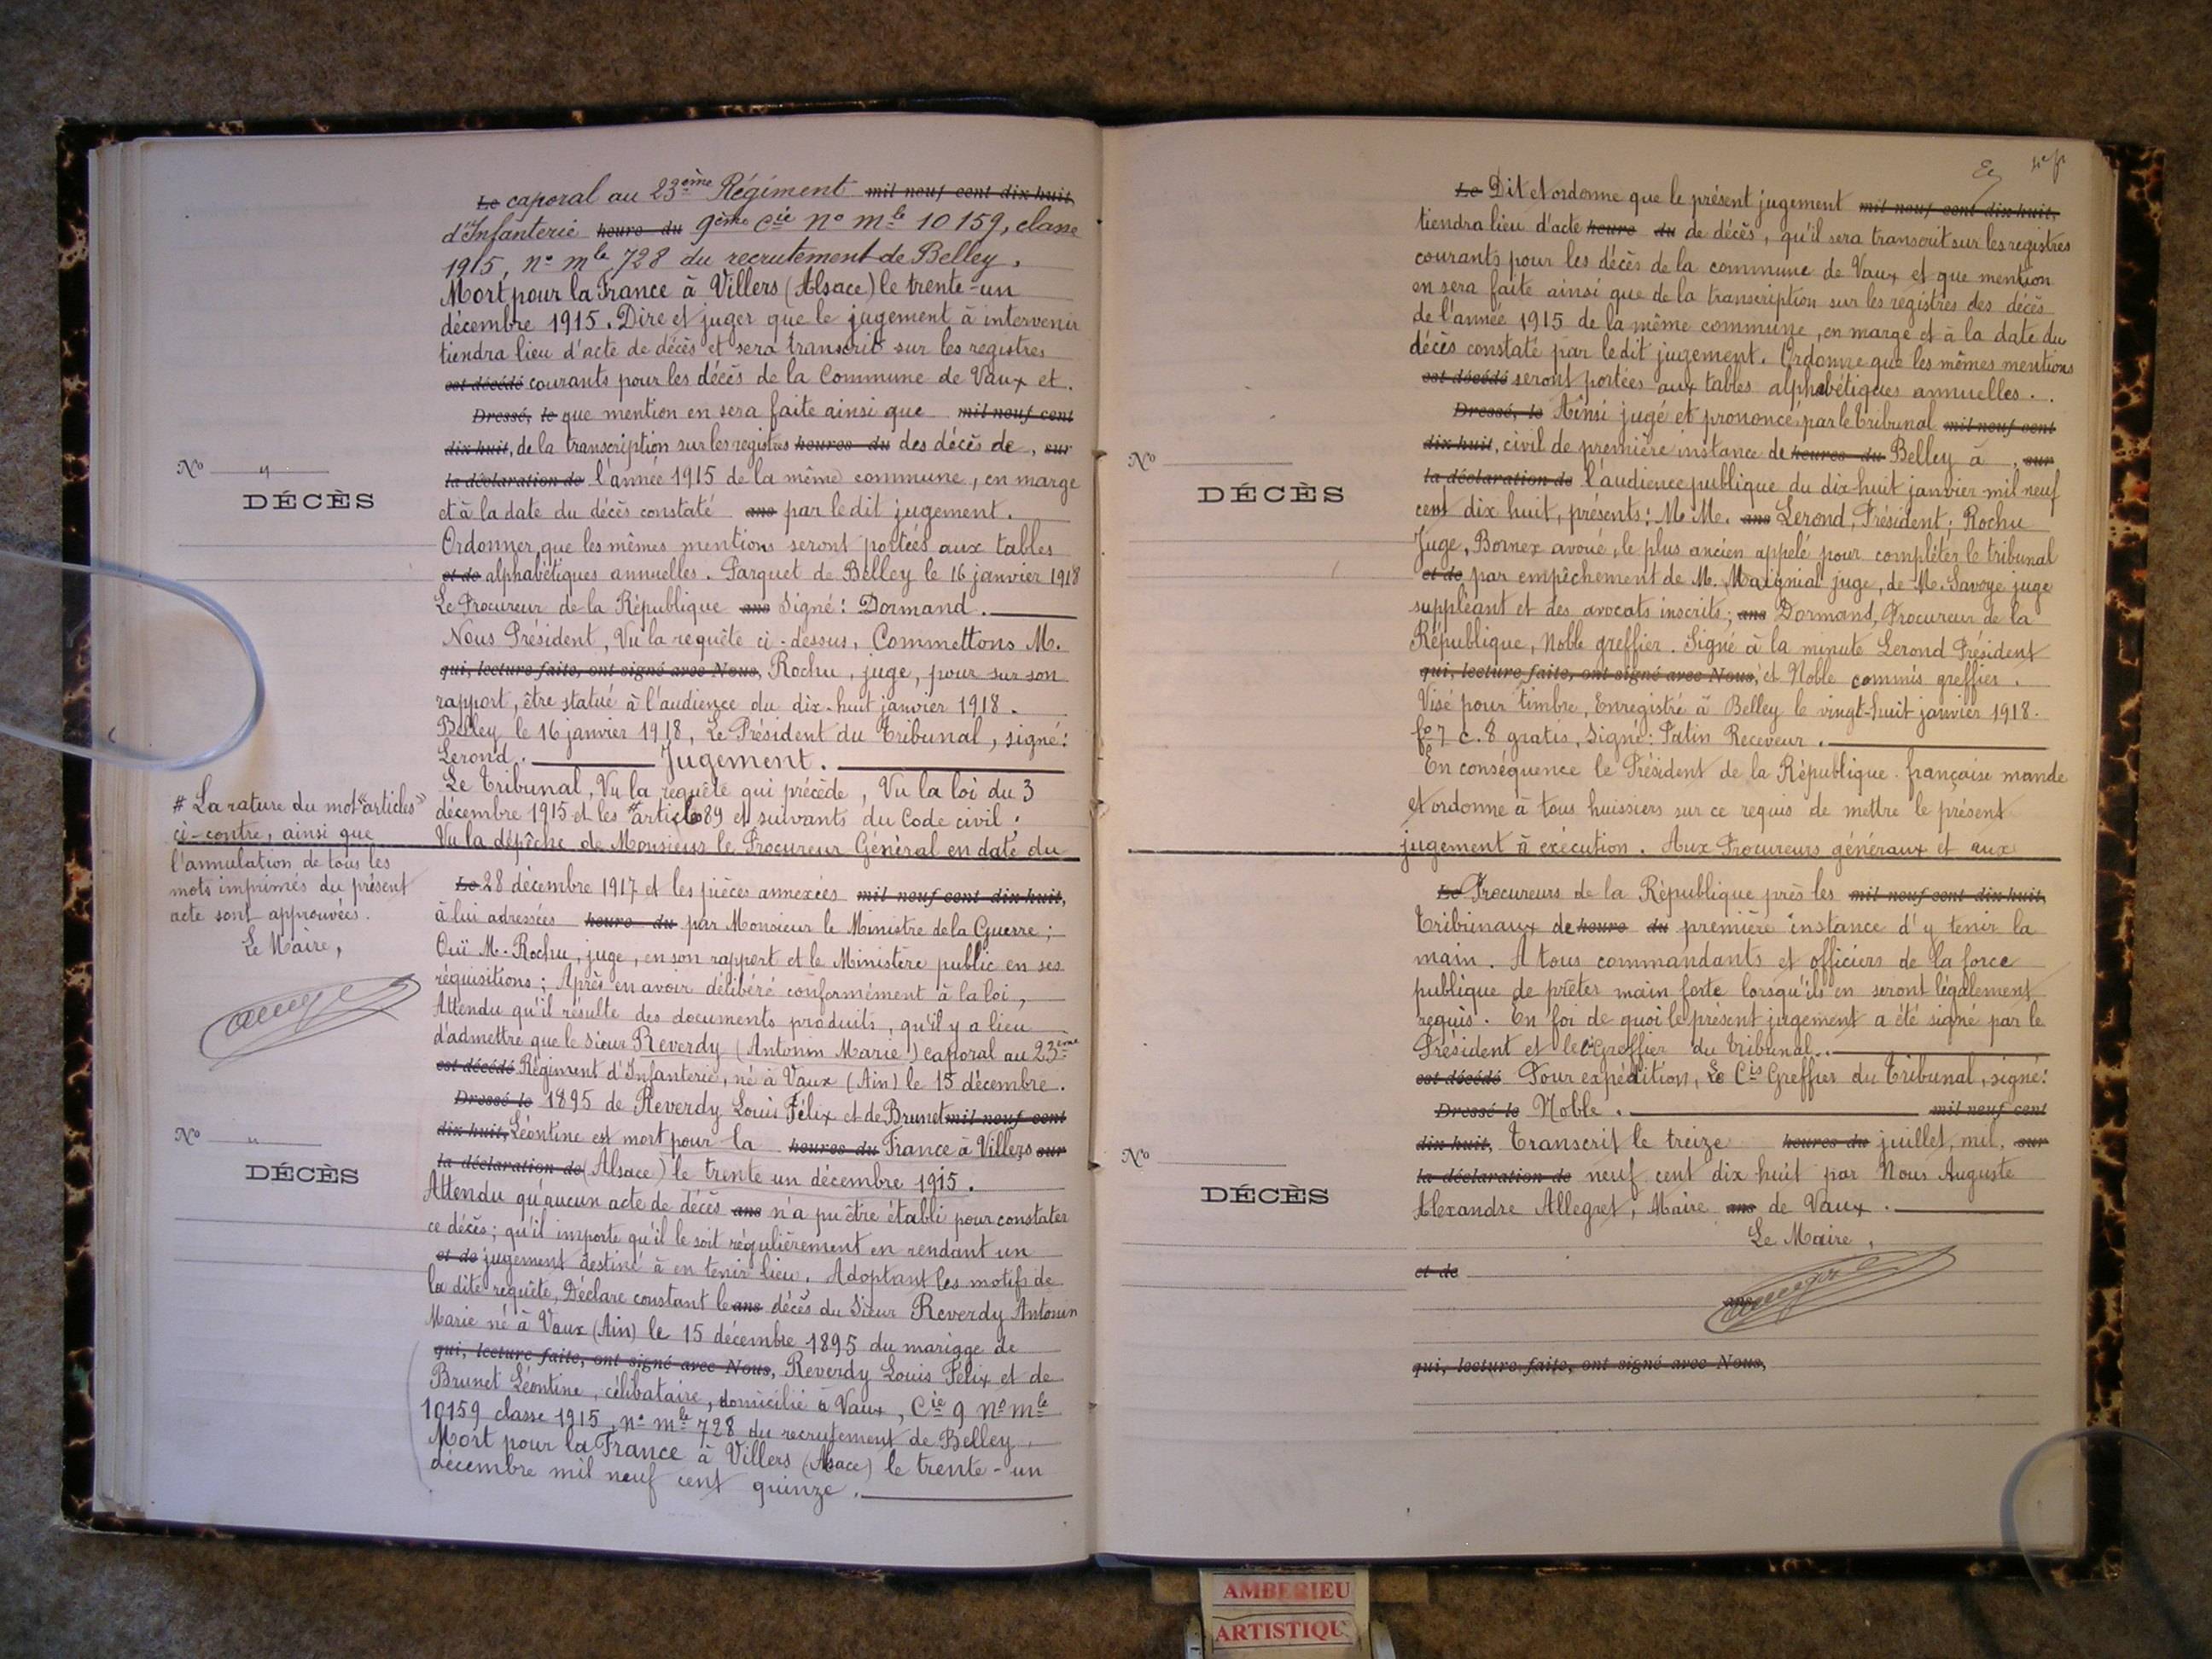 Le caporal au 23ème Régiment mil neuf cent dix huit,
d'Infanterie heure du 9ème Cie No Mle 10159, classe
1915, no mle 728 du recrutement de Belley,
Mort pour la France à Villers (Alsace) le trente-un
décembre 1915. Dire et juger que le jugement à intervenir
tiendra lieu d'acte de décès et sera transcrit sur les registres
est décédé courants pour les décès de la Commune de Vaux et.
Dressé, le que mention en sera faite ainsi que mil neuf cent
dix huit, de la transcription sur les registres heures du des décès de, sur
la déclaration de l'année 1915 de la même commune, en marge
et à la date du décès constaté ans par le dit jugement.
Ordonner que les mêmes mentions seront portées aux tables
et de alphabétiques annuelles. Parquet de Belley le 16 janvier 1918
Le Procureur de la République ans Signé: Dormand.
Nous Président, Vu la requête ci-dessus, Commettons M.
qui, lecture faite, ont signé avec Nous, Rochu, juge, pour sur son
rapport, être statué à l'audience du dix-huit janvier 1918.
Belley le 16 janvier 1918, Le Président du Tribunal, signé:
Lerond. Jugement.
Le Tribunal, Vu la requête qui précède, Vu la loi du 3
décembre 1915 et les # article 89 et suivants du Code civil;
Vu la dépêche de Monsieur le Procureur Général en date du
No "
DÉCÈS
# La rature du mot "articles"
ci-contre, ainsi que
l'annulation de tous les
mots imprimés du présent
acte sont approuvées.
Le Maire,
Le 28 décembre 1917 et les pièces annexées mil neuf cent dix huit,
à lui adressées heure du par Monsieur le Ministre de la Guerre;
Ouï M. Rochu, juge, en son rapport et le Ministère public en ses
réquisitions; Après en avoir délibéré conformément à la loi,
Attendu qu'il résulte des documents produits, qu'il y a lieu
d'admettre que le Sieur Reverdy (Antonin Marie) caporal au 23ème
est décédé Régiment d'Infanterie, né à Vaux (Ain) le 15 décembre.
Dressé le 1895 de Reverdy Louis Félix et de Brunet mil neuf cent
dix huit, Léontine est mort pour la heures du France à Villers sur
la déclaration de (Alsace) le trente un décembre 1915.
Attendu qu'aucun acte de décès ans n'a pu être établi pour constater
ce décès; qu'il importe qu'il le soit régulièrement en rendant un
et de jugement destiné à en tenir lieu. Adoptant les motifs de
la dite requête, Déclare constant le ans décès du Sieur Reverdy Antonin
Marie né à Vaux (Ain) le 15 décembre 1895 du mariage de
qui, lecture faite, ont signé avec Nous, Reverdy Louis Félix et de
Brunet Léontine, célibataire, domicilié à Vaux, Cie 9 No Mle
10159 classe 1915, no mle 728 du recrutement de Belley.
Mort pour la France à Villers (Alsace) le trente-un
décembre mil neuf cent quinze.
No "
DÉCÈS
Le Dit et ordonne que le présent jugement mil neuf cent dix huit,
tiendra lieu d'acte heure du de décès, qu'il sera transcrit sur les registres
courants pour les décès de la commune de Vaux et que mention
en sera faite ainsi que de la transcription sur les registres des décès
de l'année 1915 de la même commune, en marge et à la date du
décès constaté par le dit jugement. Ordonne que les mêmes mentions
est décédé seront portées aux tables alphabétiques annuelles.
Dressé, le Ainsi jugé et prononcé par le Tribunal mil neuf cent
dix huit, civil de première instance de heures du Belley à, sur
la déclaration de l'audience publique du dix-huit janvier mil neuf
cent dix huit, présents: M.M. ans Lerond, Président; Rochu
Juge, Bornex avoué, le plus ancien appelé pour compléter le tribunal
et de par empêchement de M. Maignial juge, de M. Savoye juge
suppléant et des avocats inscrits; ans Dormand, Procureur de la
République, Noble greffier. Signé à la minute Lerond Président
qui, lecture faite, ont signé avec Nous, et Noble commis greffier.
Visé pour timbre, Enregistré à Belley le vingt-huit janvier 1918.
fo 7 c. 8 gratis, Signé: Patin Receveur.
En conséquence le Président de la République française mande
et ordonne à tous huissiers sur ce requis de mettre le présent
jugement à exécution. Aux Procureurs généraux et aux
No
DÉCÈS
Le Procureurs de la République près les mil neuf cent dix huit,
Tribunaux de heure du première instance d'y tenir la
main. A tous commandants et officiers de la force
publique de prêter main forte lorsqu'ils en seront légalement
requis. En foi de quoi le présent jugement a été signé par le
Président et le Greffier du Tribunal.
est décédé Pour expédition, Le Cis Greffier du Tribunal, signé:
Dressé le Noble. mil neuf cent
dix huit, Transcrit le treize heures du juillet, mil, sur
la déclaration de neuf cent dix huit par Nous Auguste
Alexandre Allegret, Maire ans de Vaux.
Le Maire,
et de
ans
qui, lecture faite, ont signé avec Nous,
No
DÉCÈS
AMBERIEU
ARTISTIQU